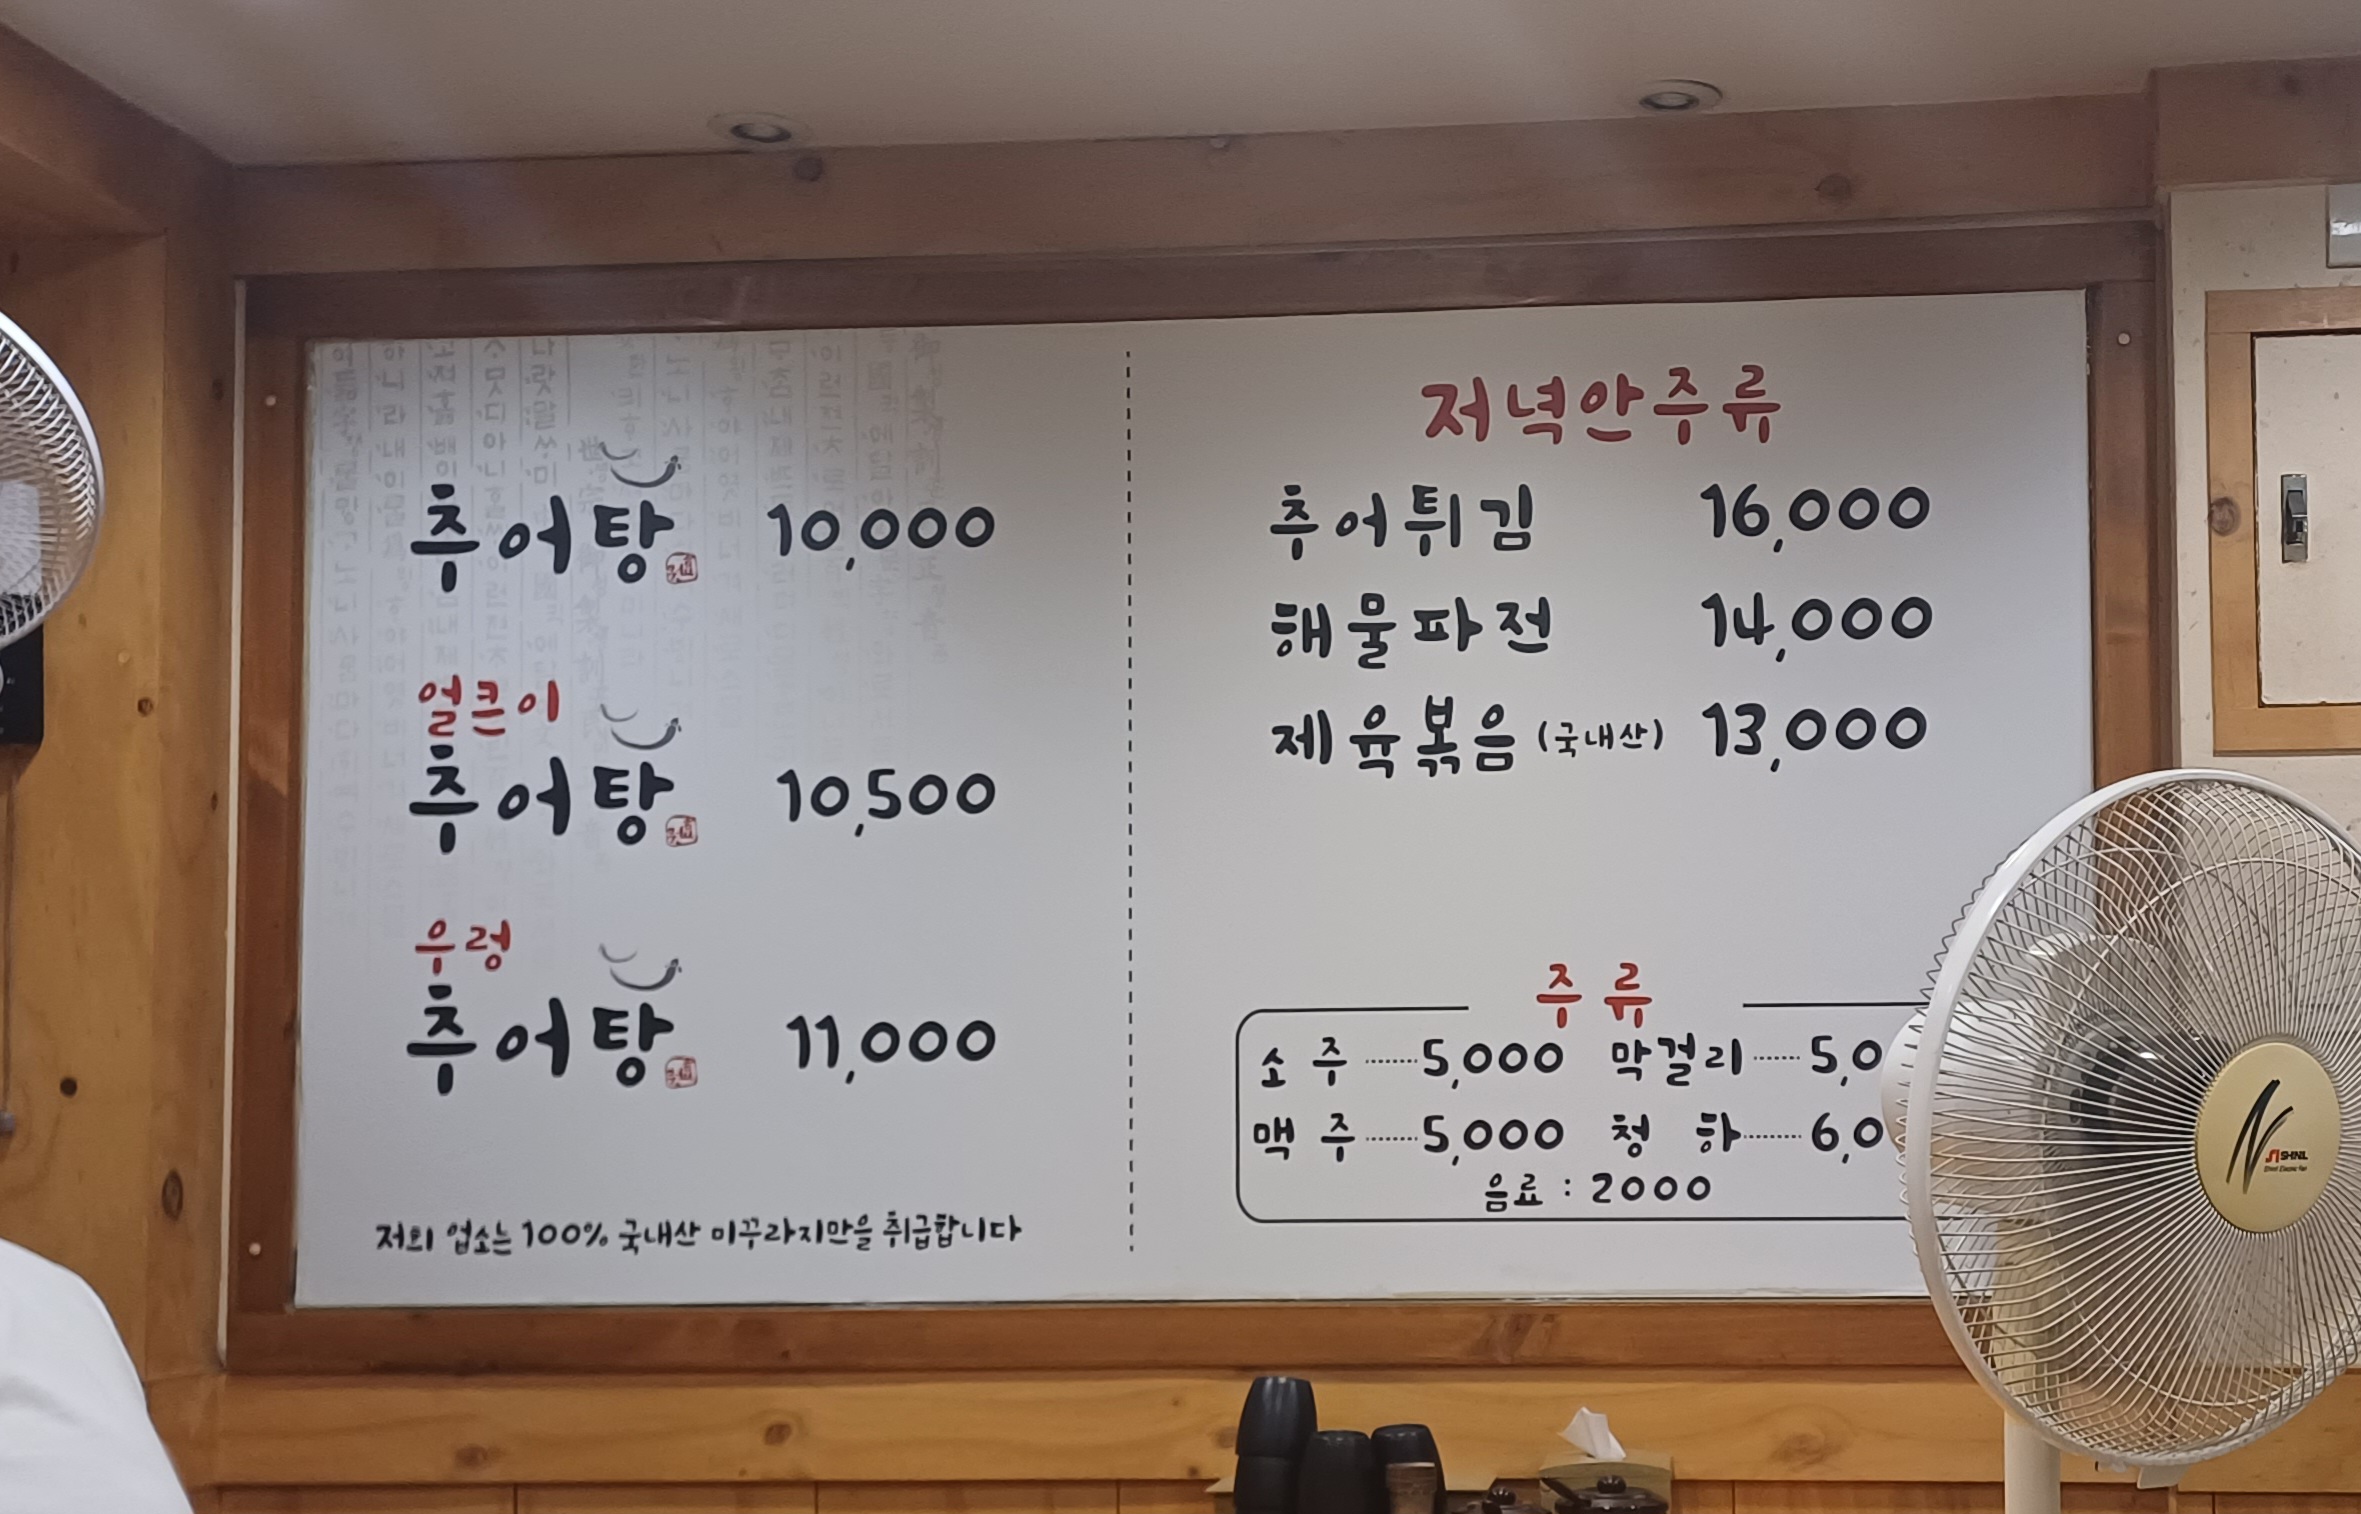 추어탕 10,000
얼큰이
추어탕 10,500
우렁
추어탕 11,000
저희 업소는 100% 국내산 미꾸라지만을 취급합니다
저녁안주류
추어튀김 16,000
해물파전 14,000
제육볶음 (국내산) 13,000
주류
소주 5,000 막걸리 5,0
맥주 5,000 청하 6,0
음료 : 2000
SHINIL